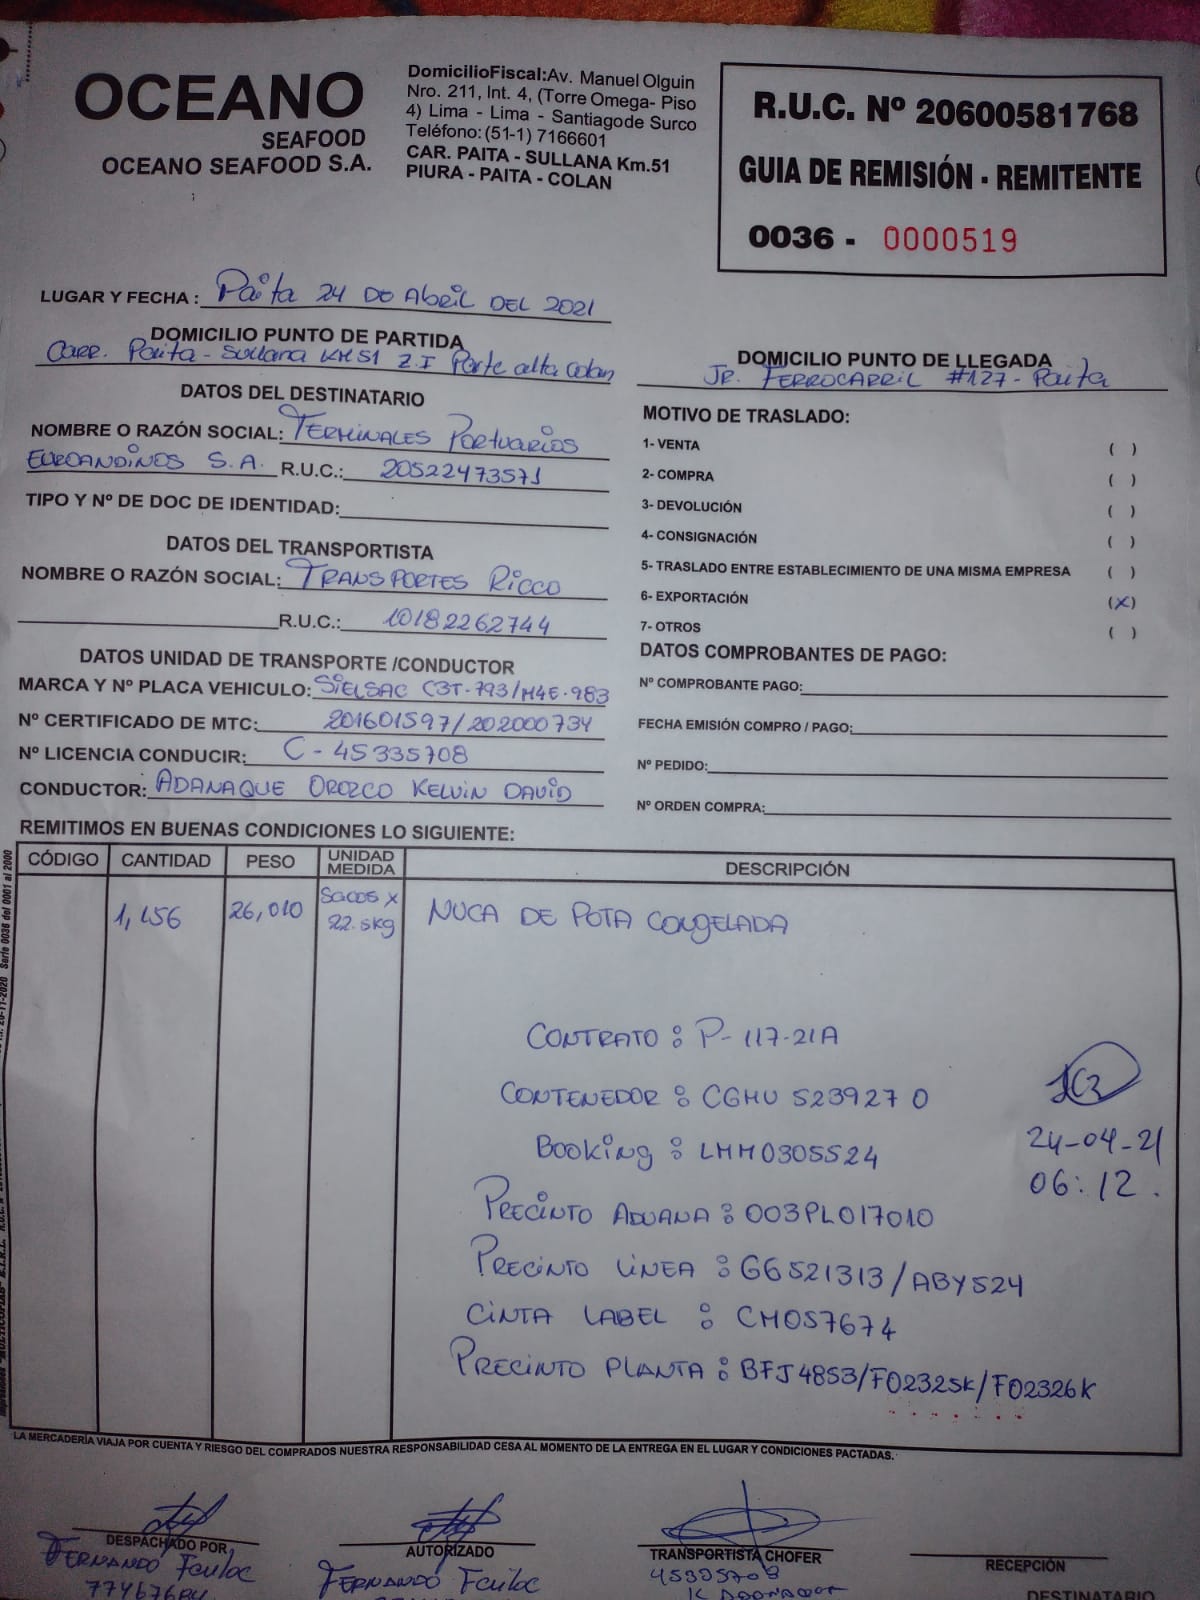 OCEANO
SEAFOOD
OCEANO SEAFOOD S.A.
DomicilioFiscal:Av. Manuel Olguin
Nro. 211, Int. 4, (Torre Omega- Piso
4) Lima - Lima - Santiagode Surco
Teléfono:(51-1) 7166601
CAR. PAITA - SULLANA Km.51
PIURA - PAITA - COLAN
R.U.C. Nº 20600581768
GUIA DE REMISIÓN - REMITENTE
0036 - 0000519
LUGAR Y FECHA : Paita 24 DE Abril DEL 2021
DOMICILIO PUNTO DE PARTIDA
Carr. Paita - Sullana KM 51 Z.I Parte alta Colan
DOMICILIO PUNTO DE LLEGADA
JR. FERROCARRIL #127 - Paita
DATOS DEL DESTINATARIO
NOMBRE O RAZÓN SOCIAL: TERMINALES PORTUARIOS
EUROANDINOS S.A. R.U.C.: 20522473571
TIPO Y Nº DE DOC DE IDENTIDAD:
DATOS DEL TRANSPORTISTA
NOMBRE O RAZÓN SOCIAL: TRANSPORTES RICCO
R.U.C.: 10182262744
DATOS UNIDAD DE TRANSPORTE /CONDUCTOR
MARCA Y Nº PLACA VEHICULO: SIELSAC C3T-793/M4E-983
Nº CERTIFICADO DE MTC: 201601597/202000734
Nº LICENCIA CONDUCIR: C-45335708
CONDUCTOR: ADANAQUE OROZCO KELVIN DAVID
MOTIVO DE TRASLADO:
1- VENTA ( )
2- COMPRA ( )
3- DEVOLUCIÓN ( )
4- CONSIGNACIÓN ( )
5- TRASLADO ENTRE ESTABLECIMIENTO DE UNA MISMA EMPRESA ( )
6- EXPORTACIÓN (X)
7- OTROS ( )
DATOS COMPROBANTES DE PAGO:
Nº COMPROBANTE PAGO:
FECHA EMISIÓN COMPRO / PAGO:
Nº PEDIDO:
Nº ORDEN COMPRA:
REMITIMOS EN BUENAS CONDICIONES LO SIGUIENTE:
CÓDIGO CANTIDAD PESO UNIDAD MEDIDA DESCRIPCIÓN
1,156 26,010 Sacos x 22.5kg NUCA DE POTA CONGELADA
CONTRATO : P-117-21A
CONTENEDOR : CGMU 523927 0
Booking : LMM0305524
24-04-21
06:12.
PRECINTO ADUANA : 003PL017010
PRECINTO LINEA : G6521313/ABY524
CINTA LABEL : CM057674
PRECINTO PLANTA : BFJ4853/F02325K/F02326K
LA MERCADERÍA VIAJA POR CUENTA Y RIESGO DEL COMPRADOS NUESTRA RESPONSABILIDAD CESA AL MOMENTO DE LA ENTREGA EN EL LUGAR Y CONDICIONES PACTADAS.
DESPACHADO POR
FERNANDO
AUTORIZADO
FERNANDO
TRANSPORTISTA CHOFER
45335708
RECEPCIÓN
DESTINATARIO
Serie 0036 del 0001 al 2000